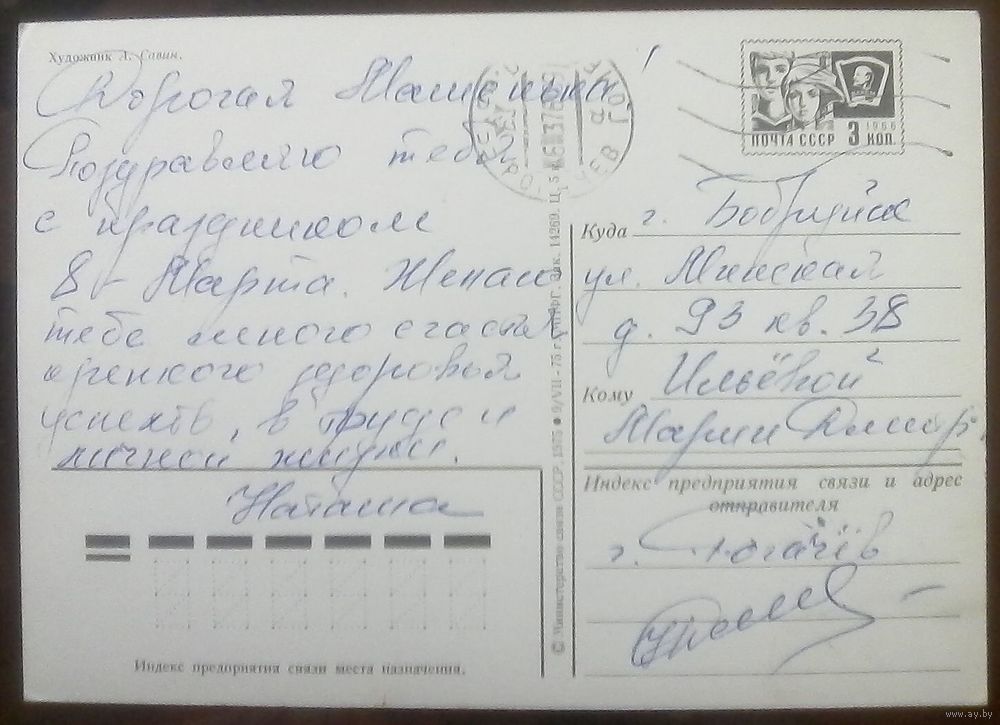 Художник Л. Савин.
Дорогая Машенька!
Поздравляю тебя
с праздником
8 - Марта. Желаю
тебе много счастья,
крепкого здоровья
успехов, в труде и
личной жизни.
Наташа
Индекс предприятия связи места назначения.
© Министерство связи СССР. 1975 ● 9/VII - 75 г. Зак. 14269. Ц. 5 к.
1966
ПОЧТА СССР 3 КОП.
Куда г. Бобруйск
ул. Минская
д. 93 кв. 38
Кому Ильёвой
Марии Дмитр.
Индекс предприятия связи и адрес
отправителя
г. Рогачёв
www.ay.by